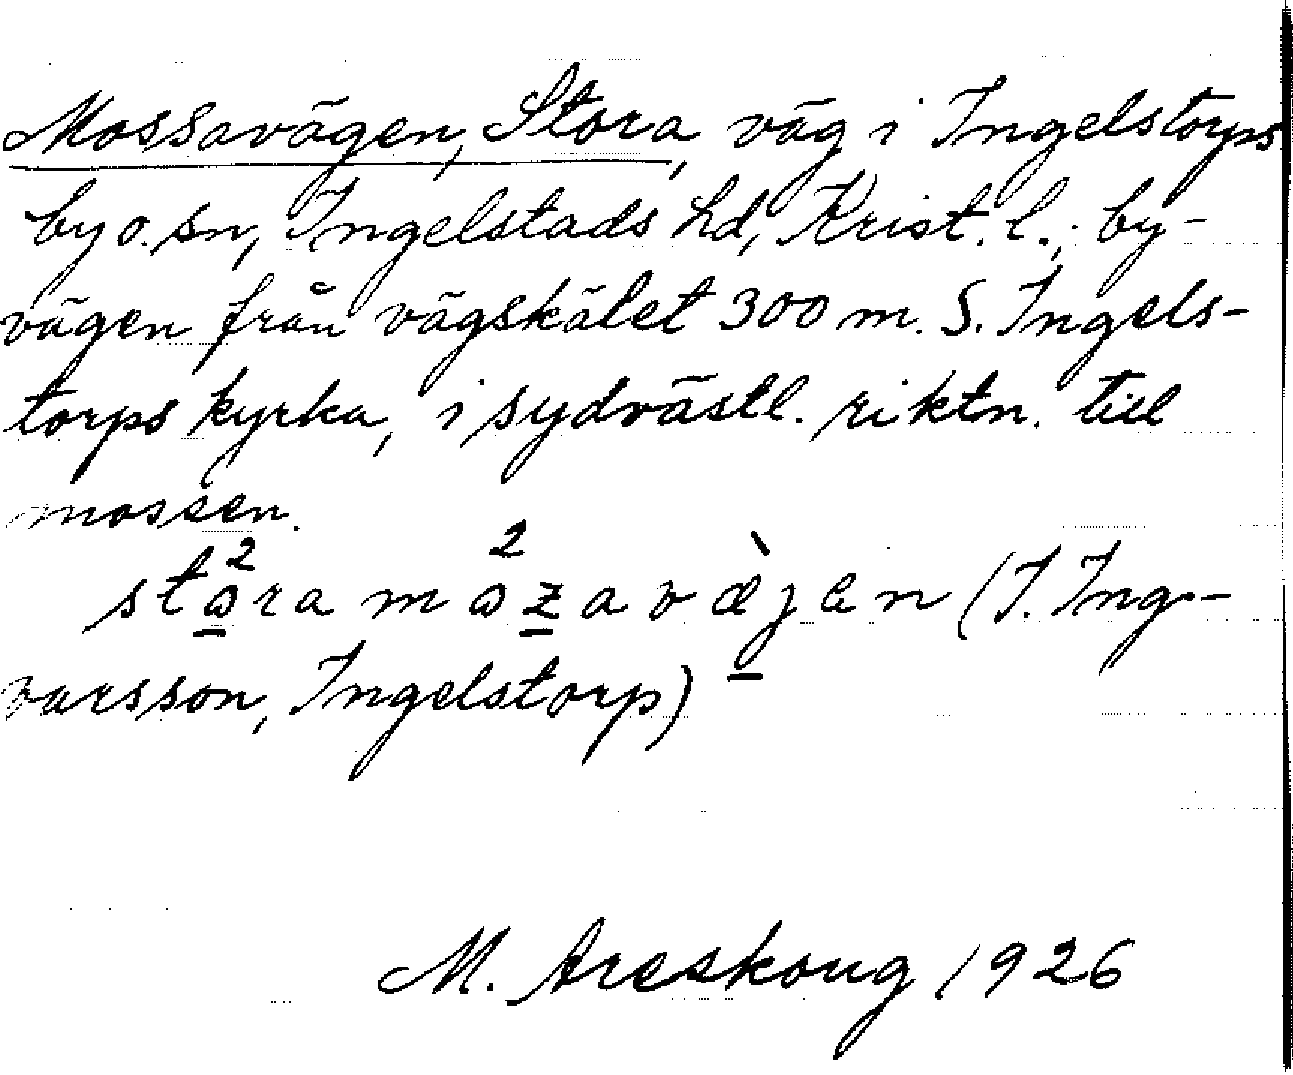 Mossavägen, Stora, väg i Ingelstorps
by o. sn, Ingelstads hd, Krist. l.; by-
vägen från vägskälet 300 m. S. Ingels-
torps kyrka, i sydvästl. riktn. till
mossen.
(J. Ing-
varsson, Ingelstorp)
M. Areskoug 1926